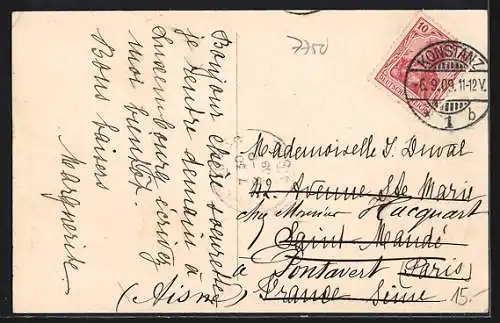 7750
10
KONSTANZ
-6.9.09.11-12V.
* 1 b
Bonjour chère soeurette
je rentre demain à
Luxembourg écrivez
moi bientôt.
Bons baisers
Marguerite
Mademoiselle S. Duval
42 Avenue Ste Marie
chez Monsieur Hacquart
Saint-Mandé
à Pontavert (Paris)
(Aisne) France Seine
15.-